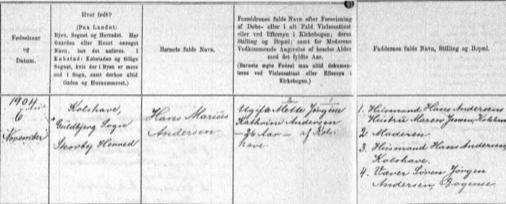 Fødselsaar
og
Datum.
Hvor født?
(Paa Landet:
Byen, Sognet og Herredet. Har
Gaarden eller Huset særeget
Navn, bør det anføres. I
Købstad: Købstadens og tillige
Sognets, hvis der i Byen er mere
end 1 Sogn, samt derhos altid
Gadens og Husnummeret.)
Barnets fulde Navn.
Forældrenes fulde Navn efter Forevisning
af Døbe- eller i alt Fald Vielsesattest
eller ved Eftersyn i Kirkebogen; deres
Stilling og Bopæl; samt for Moderens
Vedkommende Angivelse af hendes Alder
med det fyldte Aar.
Faddernes fulde Navn, Stilling og Bopæl.
1904
6
November
Kolshave,
Guldbjerg Sogn
Skovby Herred
Hans Marius
Andersen
Ugift Mette Jørgine
Kathrine Andersen
26 Aar af Kols-
have
1. Husmand Hans Andersens
Hustru Maren
2. Moderen
3. Husmand Hans Andersen,
Kolshave.
4. Væver Søren Jørgen
Andersen, Bogense